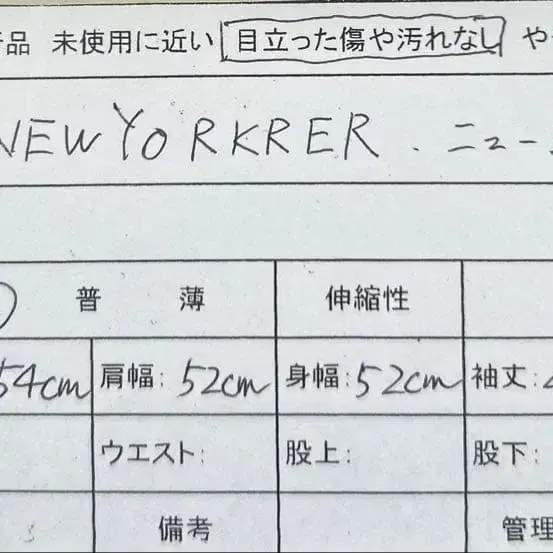 品 未使用に近い 目立った傷や汚れなし や
NEWYORKRER . ニュー
普 薄 伸縮性
54cm 肩幅: 52cm 身幅: 52cm 袖丈:
ウエスト: 股上: 股下:
備考 管理